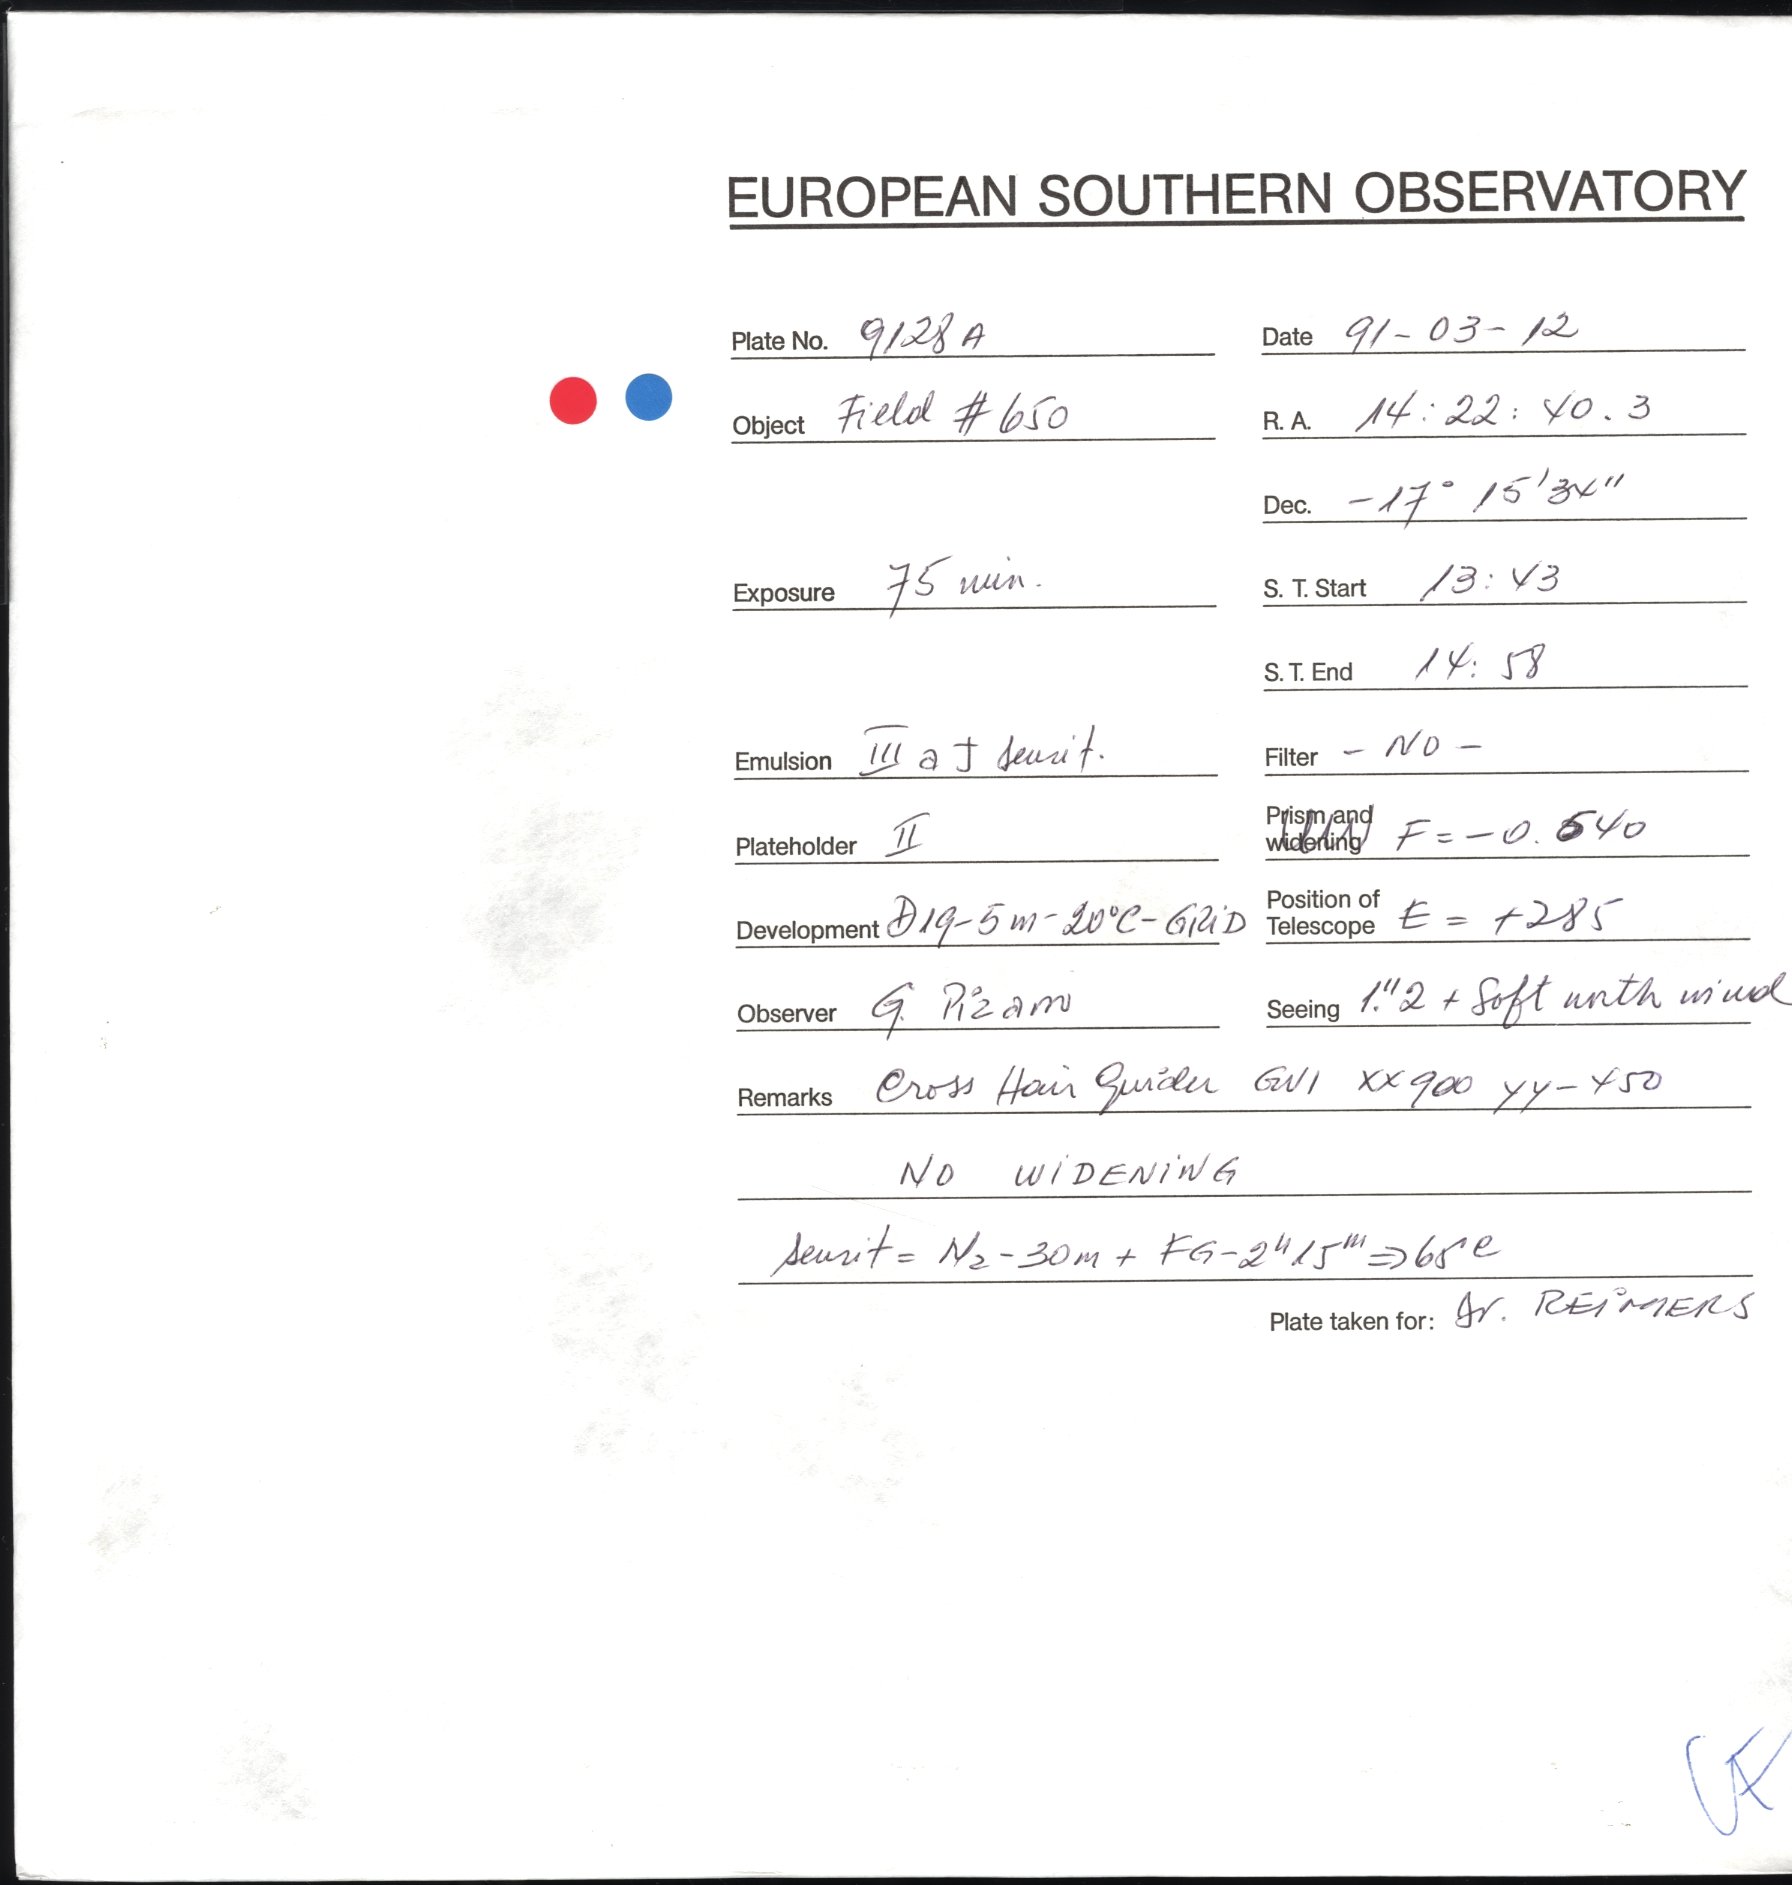 EUROPEAN SOUTHERN OBSERVATORY
Plate No. 9128A Date 91-03-12
Object Field #650 R. A. 14:22:40.3
Dec. -17° 15'34"
Exposure 75 min. S. T. Start 13:43
S. T. End 14:58
Emulsion III a J sensit. Filter - NO -
Plateholder II Prism and widening F=-0.640
Development D19-5m-20°C-GRID Position of Telescope E = +285
Observer G. Pizarro Seeing 1."2 + Soft north wind
Remarks Cross Hair Guider GV1 XX900 YY-450
NO WIDENING
Sensit = N2-30m + FG-2h15m⇒65°C
Plate taken for: Dr. REIMERS